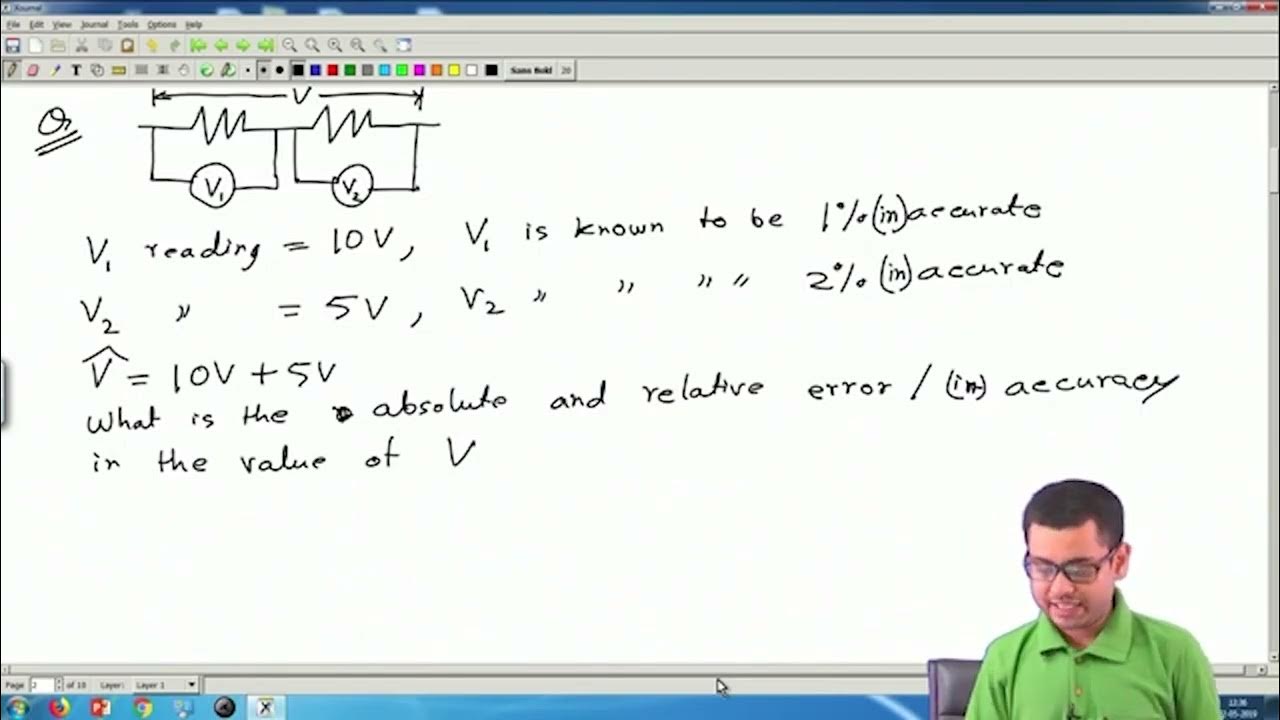 Xournal
File Edit View Journal Tools Options Help
Sans Bold 20
Q
V
V₁ V₂
V₁ reading = 10V, V₁ is known to be 1% (in) accurate
V₂ 〃 = 5V, V₂ 〃 〃 〃 〃 2% (in) accurate
V̂ = 10V + 5V
What is the absolute and relative error / (in) accuracy
in the value of V
Page 2 of 10 Layer: Layer 1
12:36